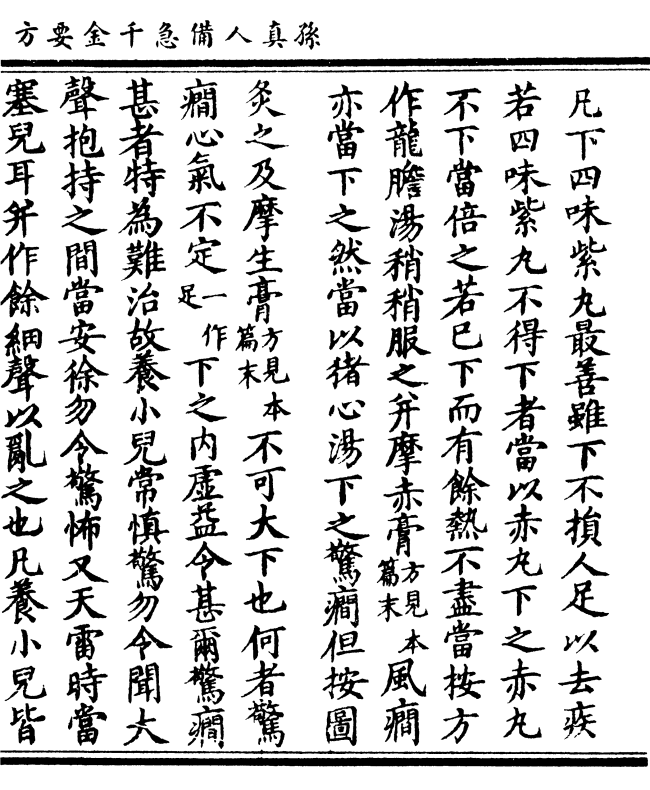 孫真人備急千金要方
凡下四味紫丸最善雖下不損人足以去疾
若四味紫丸不得下者當以赤丸下之赤丸
不下當倍之若已下而有餘熱不盡當按方
作龍膽湯稍稍服之并摩赤膏方見本篇末風癇
亦當下之然當以猪心湯下之驚癇但按圖
灸之及摩生膏方見本篇末不可大下也何者驚
癇心氣不定一作足下之内虛益令甚爾驚癇
甚者特為難治故養小兒常慎驚勿令聞大
聲抱持之間當安徐勿令驚怖又天雷時當
塞兒耳并作餘細聲以亂之也凡養小兒皆